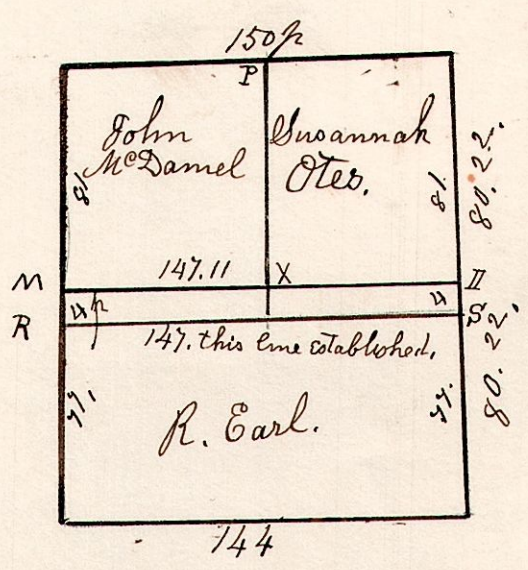 150 p
P
John
McDaniel
Susannah
Otes.
81
81
80.22.
M
147.11
X
II
4 p
4
R
S
147. this line established,
77.
77.
80.22.
R. Earl.
144